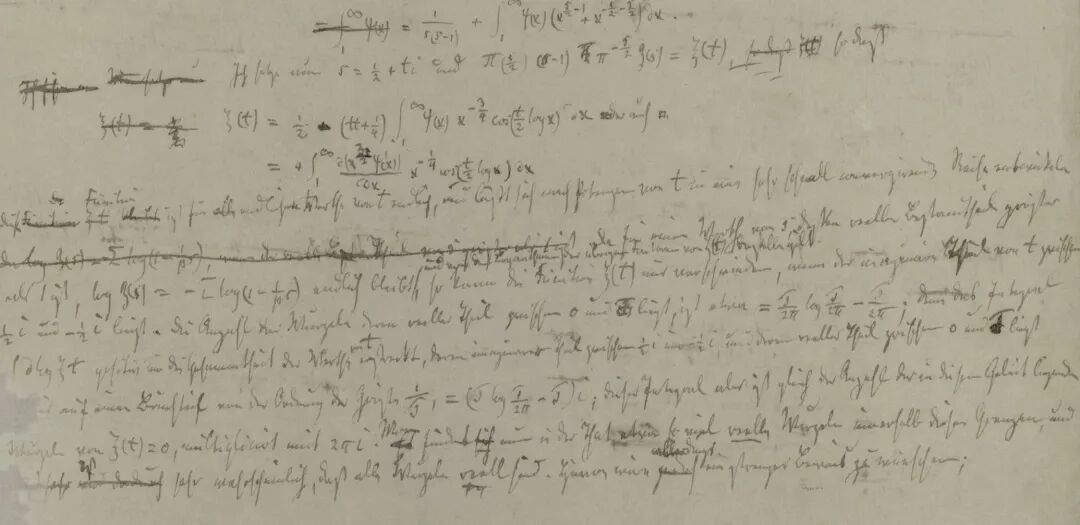 = ∫₁^∞ ψ(x) = 1/(s(s-1)) + ∫₁^∞ ψ(x) (x^(s/2-1) + x^(-s/2-1/2)) dx.
Ich setze nun s = ½ + ti und Π(s/2) (s-1) π^(-s/2) ζ(s) = ξ(t), so daß
ξ(t) = ½ - (tt+¼) ∫₁^∞ ψ(x) x^(-¾) cos(t/2 log x) dx oder auch
= 4 ∫₁^∞ d(x^(3/2) ψ'(x))/dx x^(-¼) cos(t/2 log x) dx
diese Function ist für alle endlichen Werthe von t endlich, und läßt sich nach Potenzen von tt in eine sehr schnell convergirende Reihe entwickeln
da für einen Werth von s, dessen reeller Bestandtheil größer
als 1 ist, log ζ(s) = -Σ log(1-p^(-s)) endlich bleibt, und von den Logarithmen der übrigen Factoren von ξ(t) dasselbe gilt, so kann die Function ξ(t) nur verschwinden, wenn der imaginäre Theil von t zwischen
½ i und -½ i liegt. die Anzahl der Wurzeln deren reeller Theil zwischen 0 und T liegt, ist etwa = T/2π log T/2π - T/2π; denn das Integral
∫ d log ξt positiv um den Werthe von t erstreckt, deren imaginärer Theil zwischen ½ i und -½ i, und deren reeller Theil zwischen 0 und T liegt
ist auf einen Bruchtheil von der Ordnung der Größe 1/T, = (T log T/2π - T) i; dieses Integral aber ist gleich der Anzahl der in diesem Gebiet liegenden
Wurzeln von ξ(t) = 0, multiplicirt mit 2πi. Man findet nun in der That etwa so viel reelle Wurzeln innerhalb dieser Grenzen, und
es ist sehr wahrscheinlich, daß alle Wurzeln reell sind. Hiervon wäre allerdings ein strenger Beweis zu wünschen;